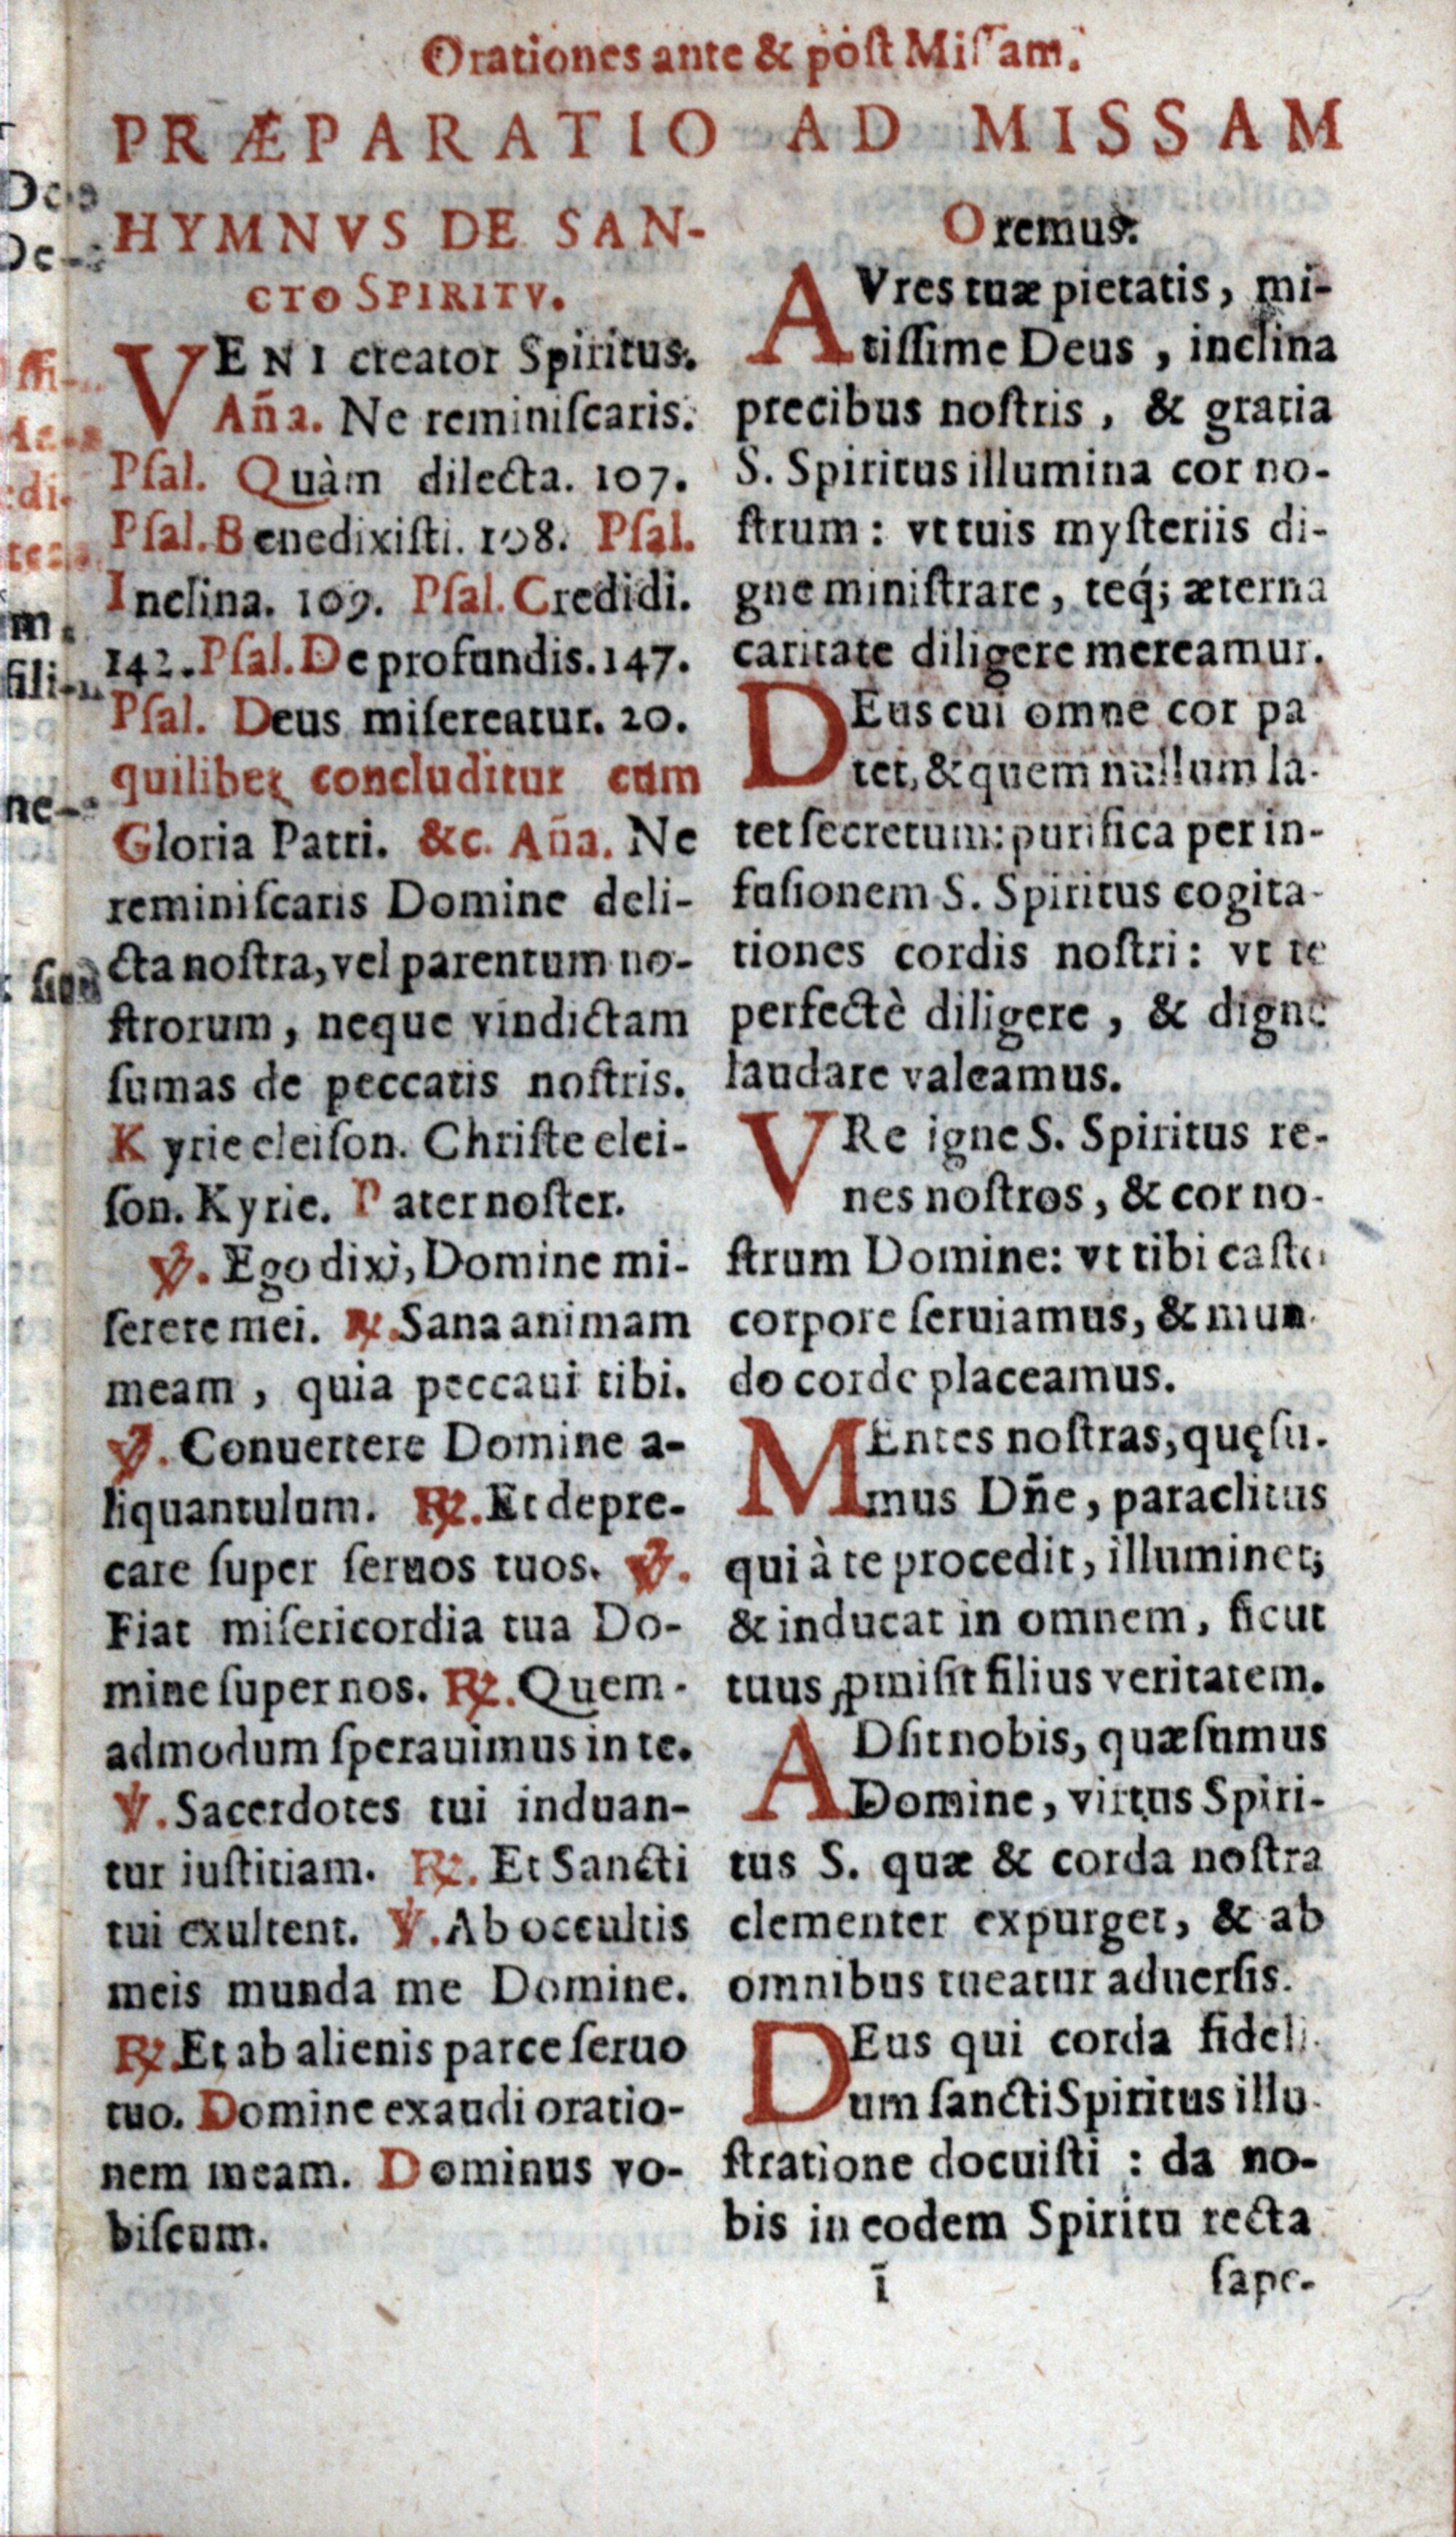 Orationes ante & poſt Miſſam.
PRÆPARATIO AD MISSAM
HYMNVS DE SAN-
CTO SPIRITV.
VENI creator Spiritus.
Aña. Ne reminiſcaris.
Pſal. Quàm dilecta. 107.
Pſal. Benedixiſti. 108. Pſal.
Inclina. 109. Pſal. Credidi.
142. Pſal. De profundis. 147.
Pſal. Deus miſereatur. 20.
quilibet concluditur cum
Gloria Patri. &c. Aña. Ne
reminiſcaris Domine deli-
cta noſtra, vel parentum no-
ſtrorum, neque vindictam
ſumas de peccatis noſtris.
Kyrie eleiſon. Chriſte elei-
ſon. Kyrie. Pater noſter.
℣. Ego dixi, Domine mi-
ſerere mei. ℟. Sana animam
meam, quia peccaui tibi.
℣. Conuertere Domine a-
liquantulum. ℟. Et depre-
care ſuper ſeruos tuos. ℣.
Fiat miſericordia tua Do-
mine ſuper nos. ℟. Quem-
admodum ſperauimus in te.
℣. Sacerdotes tui induan-
tur iuſtitiam. ℟. Et Sancti
tui exultent. ℣. Ab occultis
meis munda me Domine.
℟. Et ab alienis parce ſeruo
tuo. Domine exaudi oratio-
nem meam. Dominus vo-
biſcum.
Oremus.
AVres tuæ pietatis, mi-
tiſſime Deus, inclina
precibus noſtris, & gratia
S. Spiritus illumina cor no-
ſtrum: vt tuis myſteriis di-
gne miniſtrare, teq́; æterna
caritate diligere mereamur.
DEus cui omne cor pa
tet, & quem nullum la-
tet ſecretum: purifica per in-
fuſionem S. Spiritus cogita-
tiones cordis noſtri: vt te
perfectè diligere, & digne
laudare valeamus.
VRe igne S. Spiritus re-
nes noſtros, & cor no-
ſtrum Domine: vt tibi caſto
corpore ſeruiamus, & mun-
do corde placeamus.
MEntes noſtras, quęſu-
mus Dñe, paraclitus
qui à te procedit, illuminet;
& inducat in omnem, ſicut
tuus ꝓmiſit filius veritatem.
ADſit nobis, quæſumus
Domine, virtus Spiri-
tus S. quæ & corda noſtra
clementer expurget, & ab
omnibus tueatur aduerſis.
DEus qui corda fideli-
um ſancti Spiritus illu-
ſtratione docuiſti : da no-
bis in eodem Spiritu recta
ī
ſape-